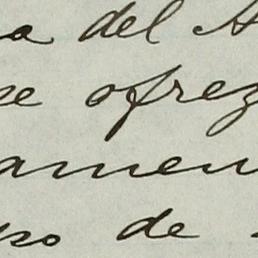 a del A
se ofrez
amen
po de